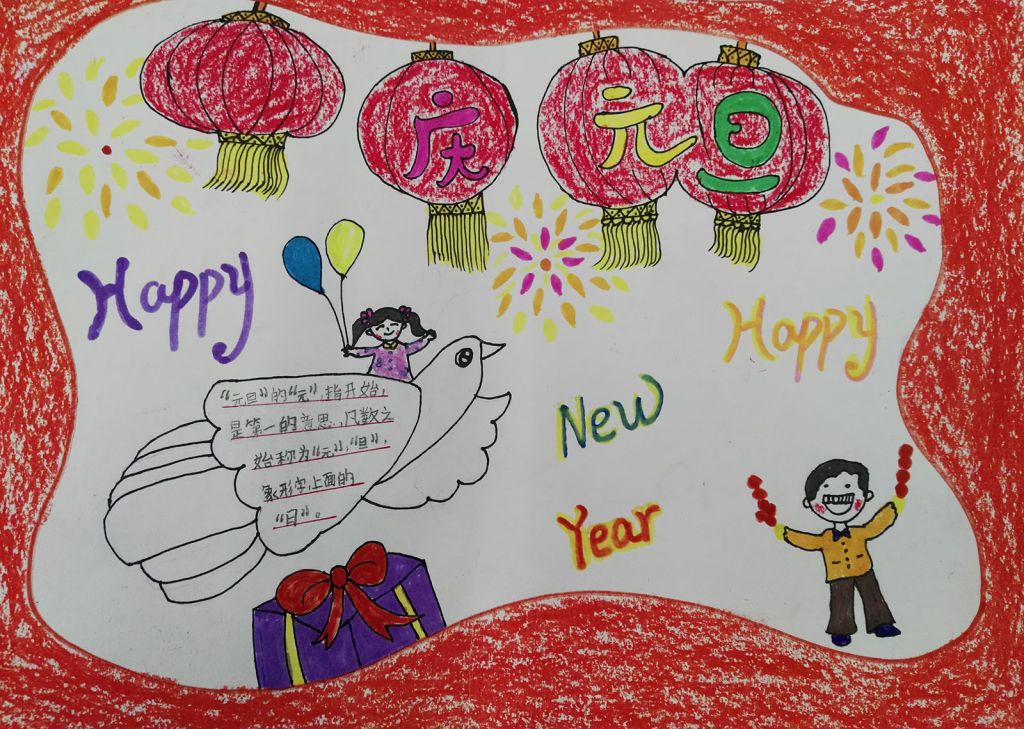 庆元旦
Happy
Happy
New
Year
“元旦”的“元”，指开始，
是第一的意思，凡数之
始称为“元”，“旦”，
象形字，上面的
“日”。